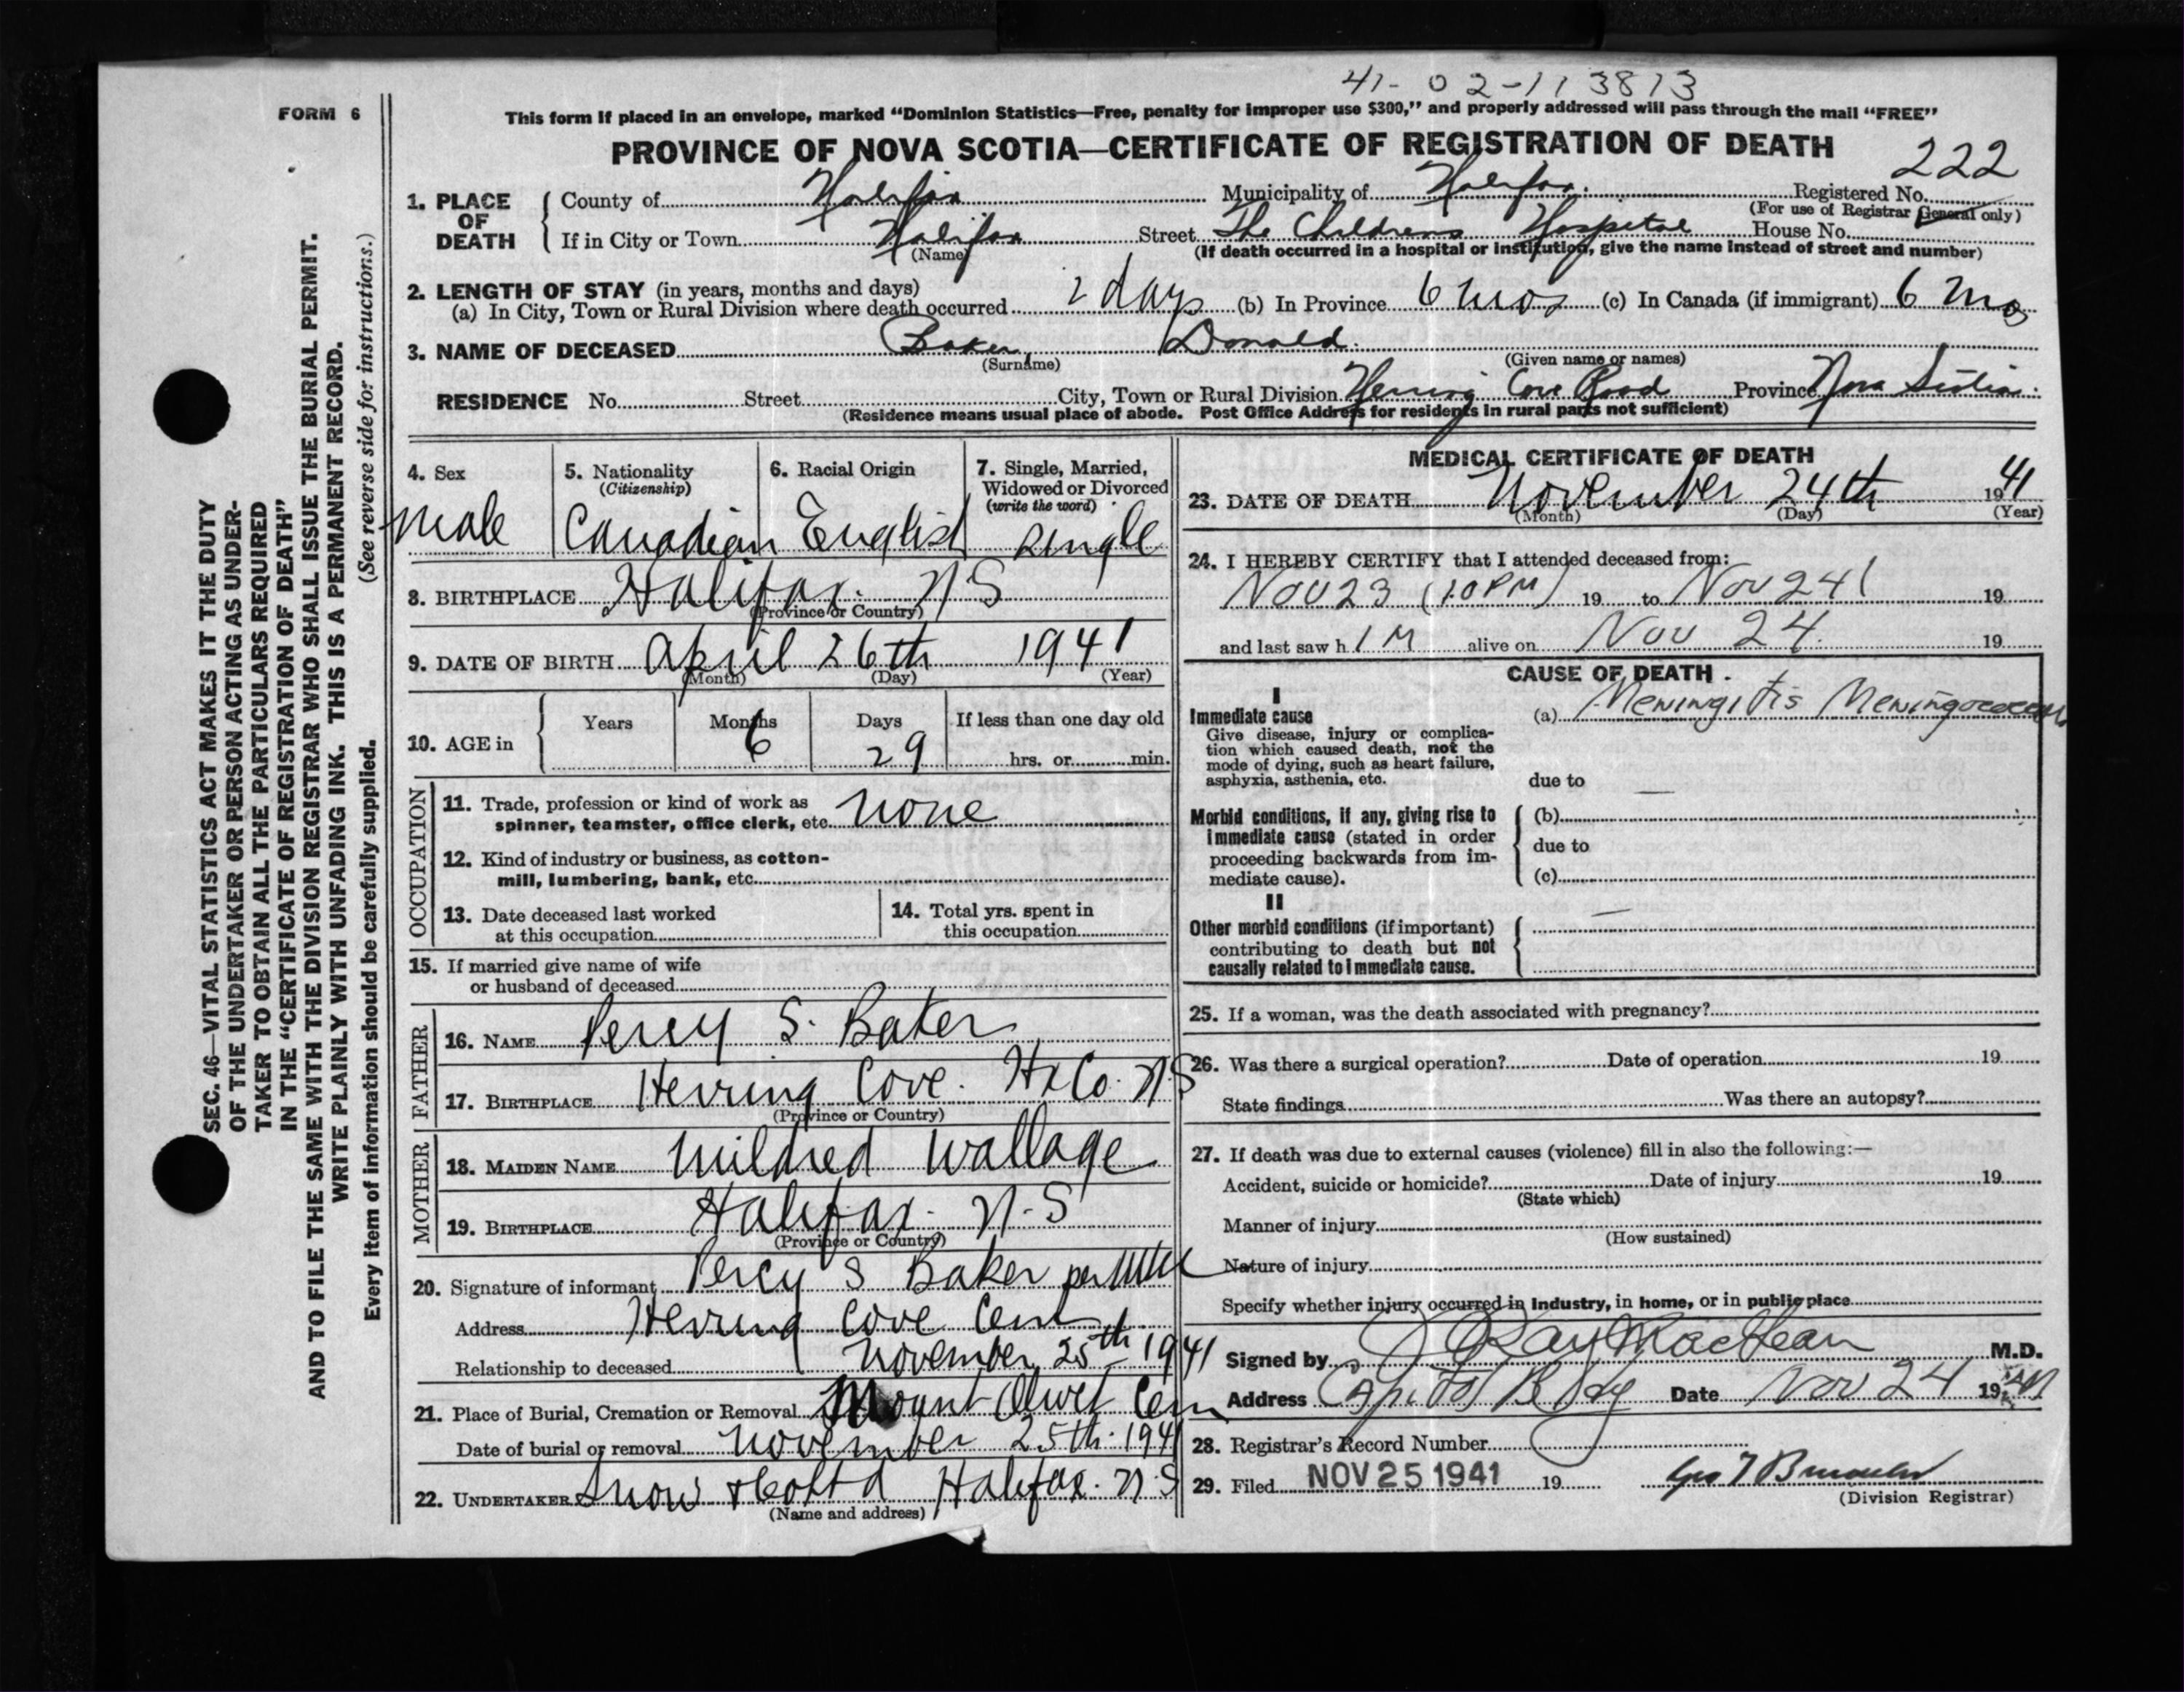 41-02-113813
FORM 6
This form if placed in an envelope, marked “Dominion Statistics—Free, penalty for improper use $300,” and properly addressed will pass through the mail “FREE”
PROVINCE OF NOVA SCOTIA—CERTIFICATE OF REGISTRATION OF DEATH
222
1. PLACE OF DEATH
County of Halifax Municipality of Halifax. Registered No.
(For use of Registrar General only)
If in City or Town Halifax Street The Childrens Hospital House No.
(Name) (If death occurred in a hospital or institution, give the name instead of street and number)
2. LENGTH OF STAY (in years, months and days)
(a) In City, Town or Rural Division where death occurred 2 days (b) In Province 6 mos (c) In Canada (if immigrant) 6 mos
3. NAME OF DECEASED Baker, Donald.
(Surname) (Given name or names)
RESIDENCE No. Street City, Town or Rural Division Herring Cove Road Province Nova Scotia.
(Residence means usual place of abode. Post Office Address for residents in rural parts not sufficient)
SEC. 46—VITAL STATISTICS ACT MAKES IT THE DUTY
OF THE UNDERTAKER OR PERSON ACTING AS UNDER-
TAKER TO OBTAIN ALL THE PARTICULARS REQUIRED
IN THE “CERTIFICATE OF REGISTRATION OF DEATH”
AND TO FILE THE SAME WITH THE DIVISION REGISTRAR WHO SHALL ISSUE THE BURIAL PERMIT.
WRITE PLAINLY WITH UNFADING INK. THIS IS A PERMANENT RECORD.
Every item of information should be carefully supplied. (See reverse side for instructions.)
4. Sex
male
5. Nationality
(Citizenship)
Canadian
6. Racial Origin
English
7. Single, Married,
Widowed or Divorced
(write the word)
single
8. BIRTHPLACE Halifax. N S
(Province or Country)
9. DATE OF BIRTH April 26th 1941
(Month) (Day) (Year)
10. AGE in
Years Months Days If less than one day old
6 29 hrs. or min.
OCCUPATION
11. Trade, profession or kind of work as
spinner, teamster, office clerk, etc. none
12. Kind of industry or business, as cotton-
mill, lumbering, bank, etc.
13. Date deceased last worked
at this occupation
14. Total yrs. spent in
this occupation
15. If married give name of wife
or husband of deceased
FATHER
16. NAME Percy S. Baker
17. BIRTHPLACE Herring Cove. Hx Co. N S
(Province or Country)
MOTHER
18. MAIDEN NAME Mildred Wallage
19. BIRTHPLACE Halifax. N.S
(Province or Country)
20. Signature of informant Percy S Baker per
Address Herring Cove
Relationship to deceased November 25th 1941
21. Place of Burial, Cremation or Removal Mount Olivet Cem
Date of burial or removal November 25th. 1941
22. UNDERTAKER Snow & Co Ltd Halifax. N.S
(Name and address)
MEDICAL CERTIFICATE OF DEATH
23. DATE OF DEATH November 24th 1941
(Month) (Day) (Year)
24. I HEREBY CERTIFY that I attended deceased from:
Nov 23 (10 PM) 19 to Nov 24 19
and last saw h IM alive on Nov 24. 19
CAUSE OF DEATH
I
Immediate cause
Give disease, injury or complica-
tion which caused death, not the
mode of dying, such as heart failure,
asphyxia, asthenia, etc.
(a) Meningitis Meningococcus
due to —
Morbid conditions, if any, giving rise to
immediate cause (stated in order
proceeding backwards from im-
mediate cause).
(b)
due to
(c)
II
Other morbid conditions (if important)
contributing to death but not
causally related to immediate cause.
—
25. If a woman, was the death associated with pregnancy?
26. Was there a surgical operation? Date of operation 19
State findings Was there an autopsy?
27. If death was due to external causes (violence) fill in also the following:—
Accident, suicide or homicide? Date of injury 19
(State which)
Manner of injury
(How sustained)
Nature of injury
Specify whether injury occurred in industry, in home, or in public place
Signed by J Ray MacLean M.D.
Address Capitol Bldg Date Nov 24 1941
28. Registrar's Record Number
29. Filed NOV 25 1941 19
(Division Registrar)